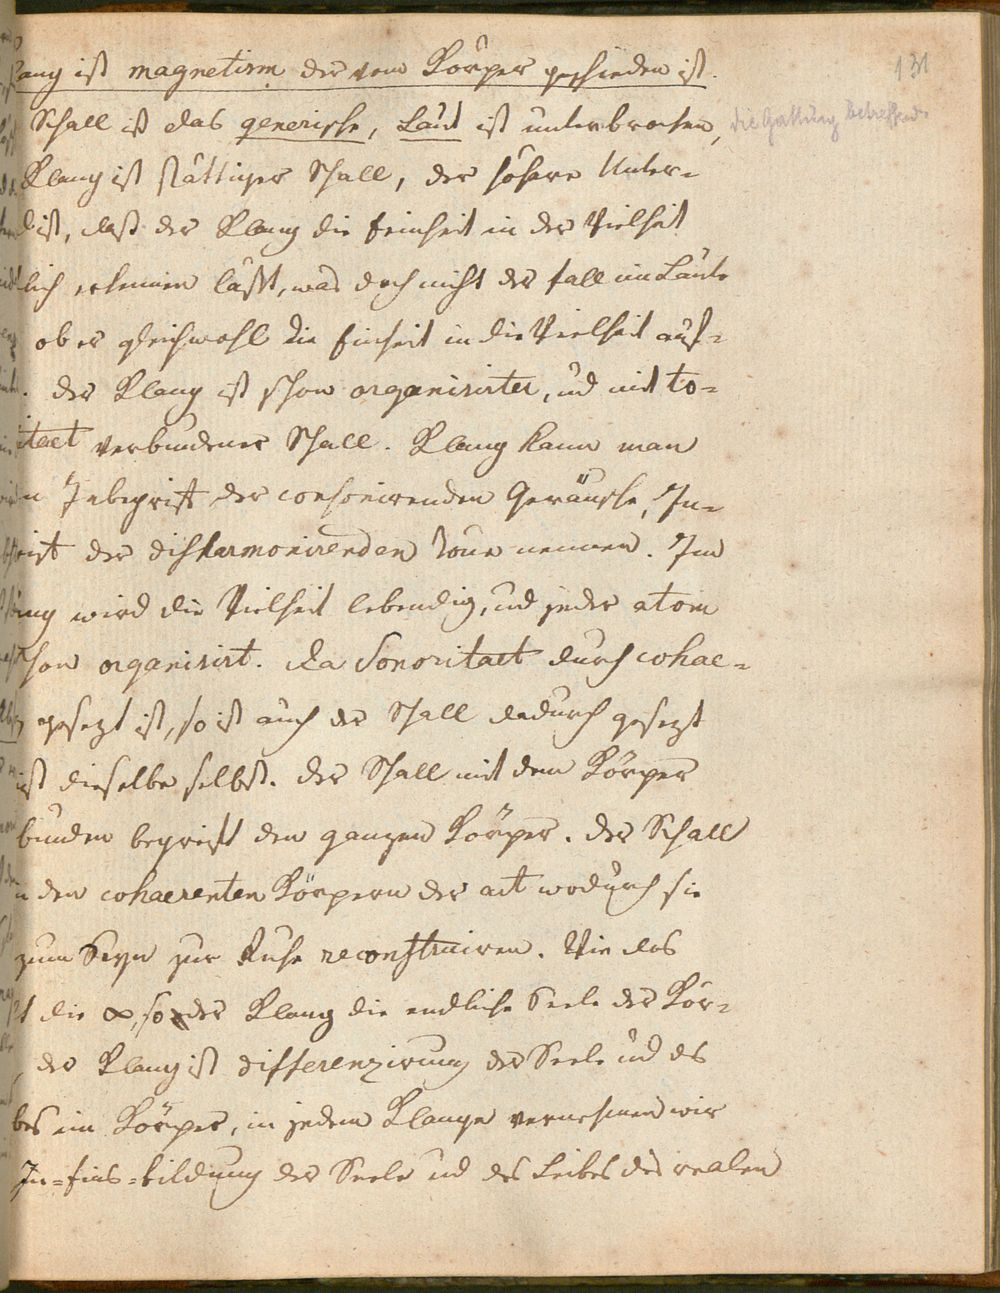 131
ang ist magnetism der vom Körper geschieden ist.
Schall ist das generische, Laut ist unterbrochen, die Gattung betreffend.
Klang ist stättiger Schall, der höhere Unter-
d ist, daß der Klang die Einheit in der Vielheit
lich erkennen läßt, was doch nicht der fall im Laute
ob er gleichwohl die Einheit in die Vielheit auf-
. der Klang ist schon organisirter, ud mit to-
itaet verbundener Schall. Klang kann man
n Inbegriff der consonirenden Geräusche, In-
griff der disharmonirenden Töne nennen. Im
ang wird die Vielheit lebendig, ud jeder atom
schon organisirt. da Sonoritaet durch cohae-
gesezt ist, so ist auch der Schall dadurch gesezt
ist dieselbe selbst. der Schall mit dem Körper
bunden begreift den ganzen Körper. der Schall
in den cohaerenten Körpern der act wodurch sie
zum Seyn zur Ruhe reconstruiren. Wie das
t die ∞, so der Klang die endliche Seele der Kör-
, der Klang ist differenzirung der Seele ud des
bes im Körper, in jedem Klange vernehmen wir
In-Eins-bildung der Seele ud des Leibes des realen